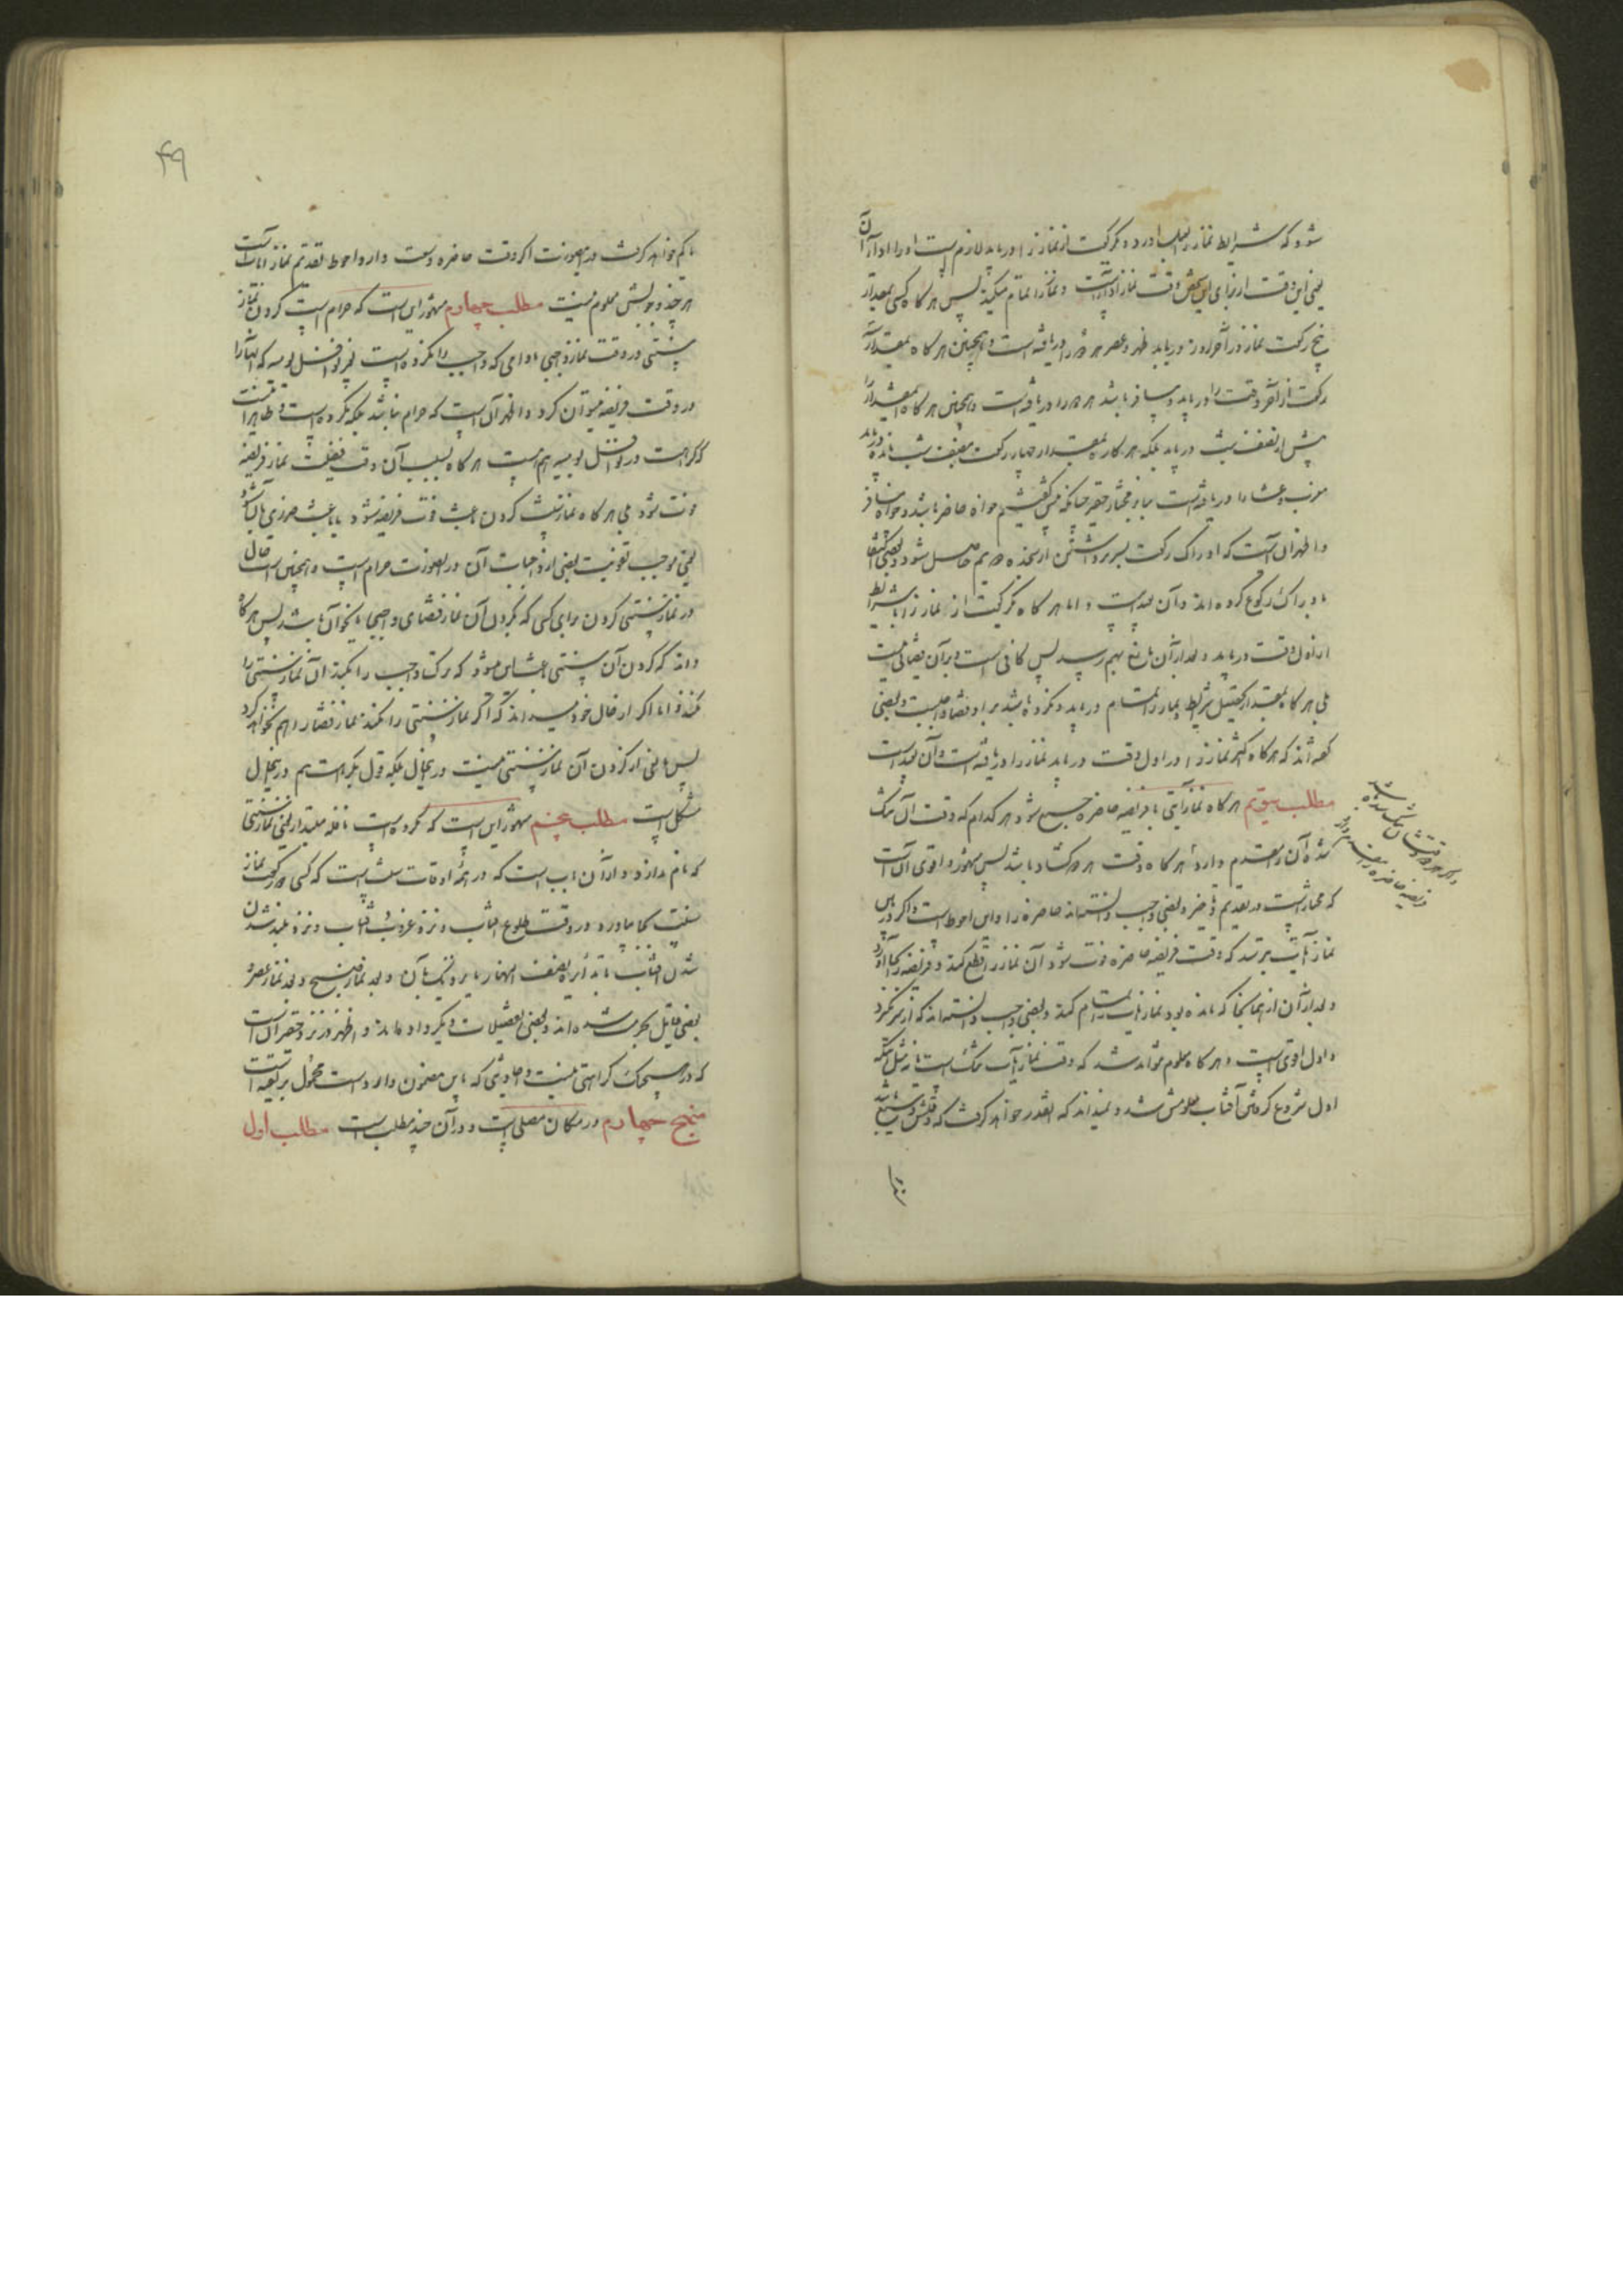 شود که شرایط نماز را بعمل آورد و یکرکعت از نماز را دریابد لازمست او را ادا آن
یعنی این وقت از برای این شخص وقت نماز اداست و نماز را تمام میکند پس هرگاه کسی بمقدار
پنج رکعت نماز در آخر روز دریابد ظهر و عصر هر دو را دریافته است و همچنین هرگاه بمقدار
رکعت از آخر وقت را دریابد و مسافر باشد هر دو را دریافته است و همچنین هرگاه بمقدار
پیش از نصف شب دریابد بلکه هرگاه بمقدار چهار رکعت بنصف شب مانده دریابد
مغرب و عشا را دریافته است بنا بر مختار حقیر چنانکه گفتیم خواه حاضر باشد و خواه مسافر
و اظهر آنست که ادراک رکعت بسر برداشتن از سجده دویم حاصل شود و بعضی اکتفا
بادراک رکوع کرده‌اند و آن بعید است و اما هرگاه یکرکعت از نماز را با شرایط
از اول وقت دریابد و بعد از آن مانع بهم رسد پس کافی است و بر آن قضائی نیست
بلی هرگاه بمقدار تحصیل شرایط و نماز تمام دریابد و نکرده باشد بر او قضا واجبست و بعضی
گفته‌اند که هرگاه اکثر نماز را در اول وقت دریابد نماز را دریافته است و آن بعید است
مطلب سیّم هرگاه نماز آیتی با فریضه حاضره جمع شود هر کدام که وقت آن تنگ
شده آن را مقدم دارد و هرگاه وقت هر دو گشاد باشد پس مشهور و اقوی آنست
که مختار است در تقدیم و تأخیر و بعضی واجب دانسته‌اند حاضره را و این احوط است و اگر در بین
نماز آیت بترسد که وقت فریضه حاضره فوت شود آن نماز را قطع کند و فریضه را بجا آورد
و بعد از آن از همانجا که مانده بود نماز آیت را تمام کند و بعضی واجب دانسته‌اند که از سر گیرد
و اول اقوی است و هرگاه معلوم تواند شد که وقت نماز آیت تنگ است یا نه مثل آنکه
اول شروع گرفتن آفتاب معلومش شد و نمیداند که آنقدر خواهد گرفت که وقتش وسیع باشد
و اگر هر دو وقتشان تنگ شده باشد
فریضه حاضره را مقدم دارد
یا کم خواهد گرفت در اینصورت اگر وقت حاضره وسعت دارد احوط تقدیم نماز آیات است
هر چند وجوبش معلوم نیست مطلب چهارم مشهور این است که حرام است کردن نماز
سنتی در وقت نماز واجبی مادامی که واجب را نکرده است بغیر نوافل یومیه که آنها را
در وقت فریضه میتوان کرد و اظهر آن است که حرام نباشد بلکه مکروه است و ظاهرا
کراهت در نوافل یومیه هم هست هرگاه بسبب آن وقت فضیلت نماز فریضه
فوت شود بلی هرگاه نماز سنت کردن باعث فوت فریضه شود یا باعث ضرری بآن شود
یعنی موجب تفویت بعضی از واجبات آن در اینصورت حرام است و همچنین است حال
در نماز سنتی کردن برای کسی که بگردن آن نماز قضای واجبی باشد پس هرگاه
داند که کردن آن سنتی باعث این میشود که ترک واجب را بکند آن نماز سنتی را
نکند و اما اگر از حال خود میداند که اگر نماز سنتی را نکند نماز قضا را هم نخواهد کرد
پس مانعی از کردن آن نماز سنتی نیست در اینحال بلکه قول بکراهت هم در اینحال
مشکل است مطلب پنجم مشهور این است که مکروه است نافله مبتدا یعنی نماز سنتی
که نام ندارد و از آن باب است که در همه اوقات سنت است که کسی دو رکعت نماز
سنت بجا بیاورد در وقت طلوع آفتاب و نزد غروب آفتاب و نزد بلند شدن
شدن آفتاب تا بدایره نصف النهار یا نزدیک بآن و بعد نماز صبح و بعد نماز عصر و
بعضی قایل بحرمت شده‌اند و بعضی تفصیلات دیگر داده‌اند و اظهر در نزد حقیر آن است
که در هیچیک کراهتی نیست و احادیثی که باین مضمون وارد است محمول بر تقیه است
منهج چهارم در مکان مصلی است و در آن چند مطلب است مطلب اول
۴۹